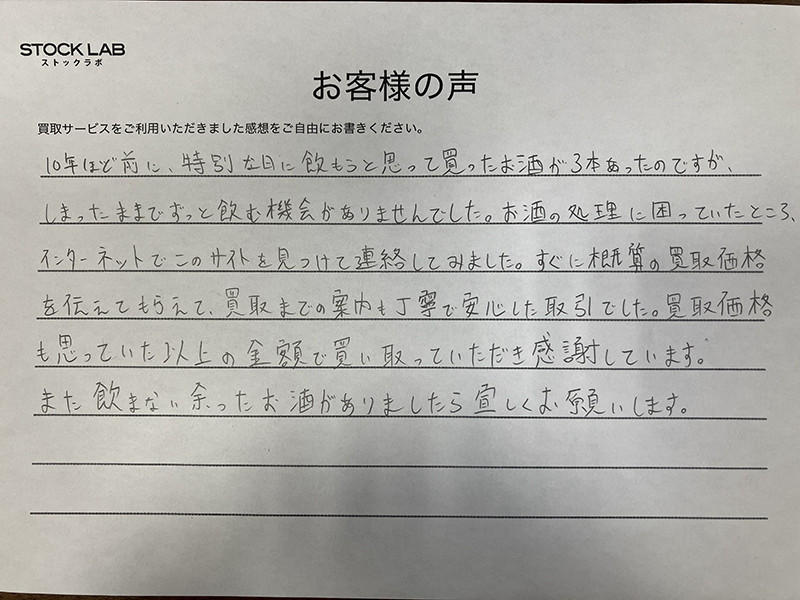 STOCK LAB
ストックラボ
お客様の声
買取サービスをご利用いただきました感想をご自由にお書きください。
10年ほど前に、特別な日に飲もうと思って買ったお酒が3本あったのですが、
しまったままでずっと飲む機会がありませんでした。お酒の処理に困っていたところ、
インターネットでこのサイトを見つけて連絡してみました。すぐに概算の買取価格
を伝えてもらえて、買取までの案内も丁寧で安心した取引でした。買取価格
も思っていた以上の金額で買い取っていただき感謝しています。
また飲まない余ったお酒がありましたら宜しくお願いします。